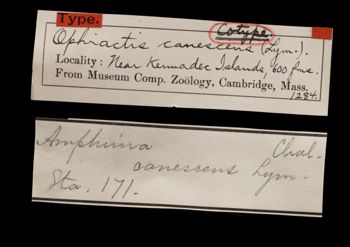 Type.
Cotype
Ophiactis canescens (Lym.).
Locality: Near Kermadec Islands, 600 fms.
From Museum Comp. Zoölogy, Cambridge, Mass.
1284.
Amphiura Chal-
canescens Lym.
Sta. 171.